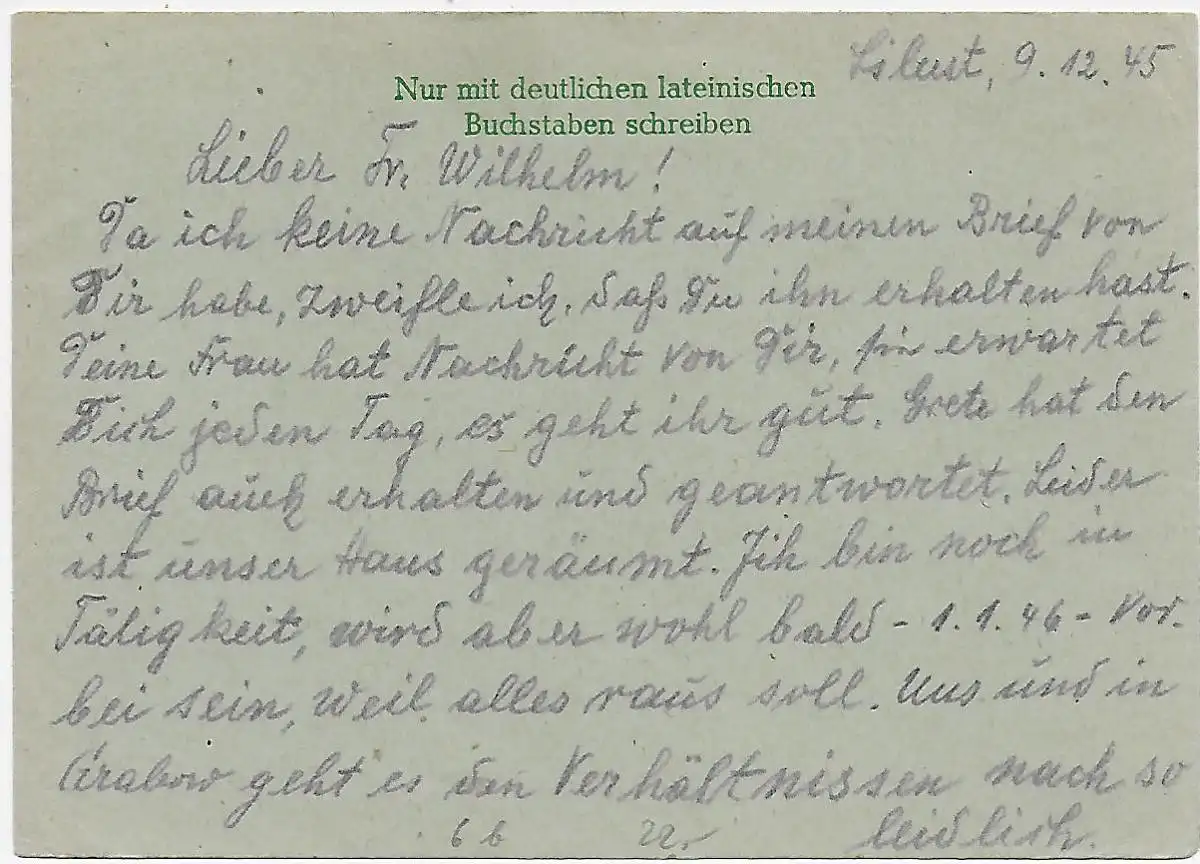 Lslust, 9.12.45
Nur mit deutlichen lateinischen
Buchstaben schreiben
Lieber Fr. Wilhelm!
Da ich keine Nachricht auf meinen Brief von
Dir habe, zweifle ich, daß Du ihn erhalten hast.
Deine Frau hat Nachricht von Dir, sie erwartet
Dich jeden Tag, es geht ihr gut. Grete hat den
Brief auch erhalten und geantwortet. Leider
ist unser Haus geräumt. Ich bin noch in
Tätigkeit, wird aber wohl bald - 1.1.46 - vor-
bei sein, weil alles raus soll. Uns und in
Grabow geht es den Verhältnissen nach so
leidlich.
66 22.-